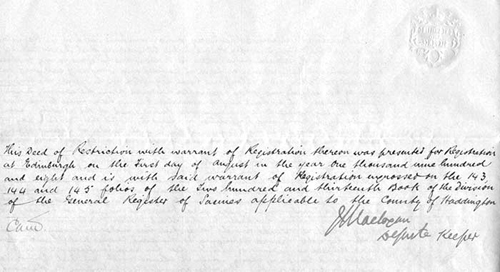 This Deed of Restriction with warrant of Registration thereon was presented for Registration
at Edinburgh on the First day of August in the year One thousand nine hundred
and eight and is with said warrant of Registration engrossed on the 143,
144 and 145 folios of the Two hundred and thirteenth Book of the Division
of the General Register of Sasines applicable to the County of Haddington
Depute Keeper